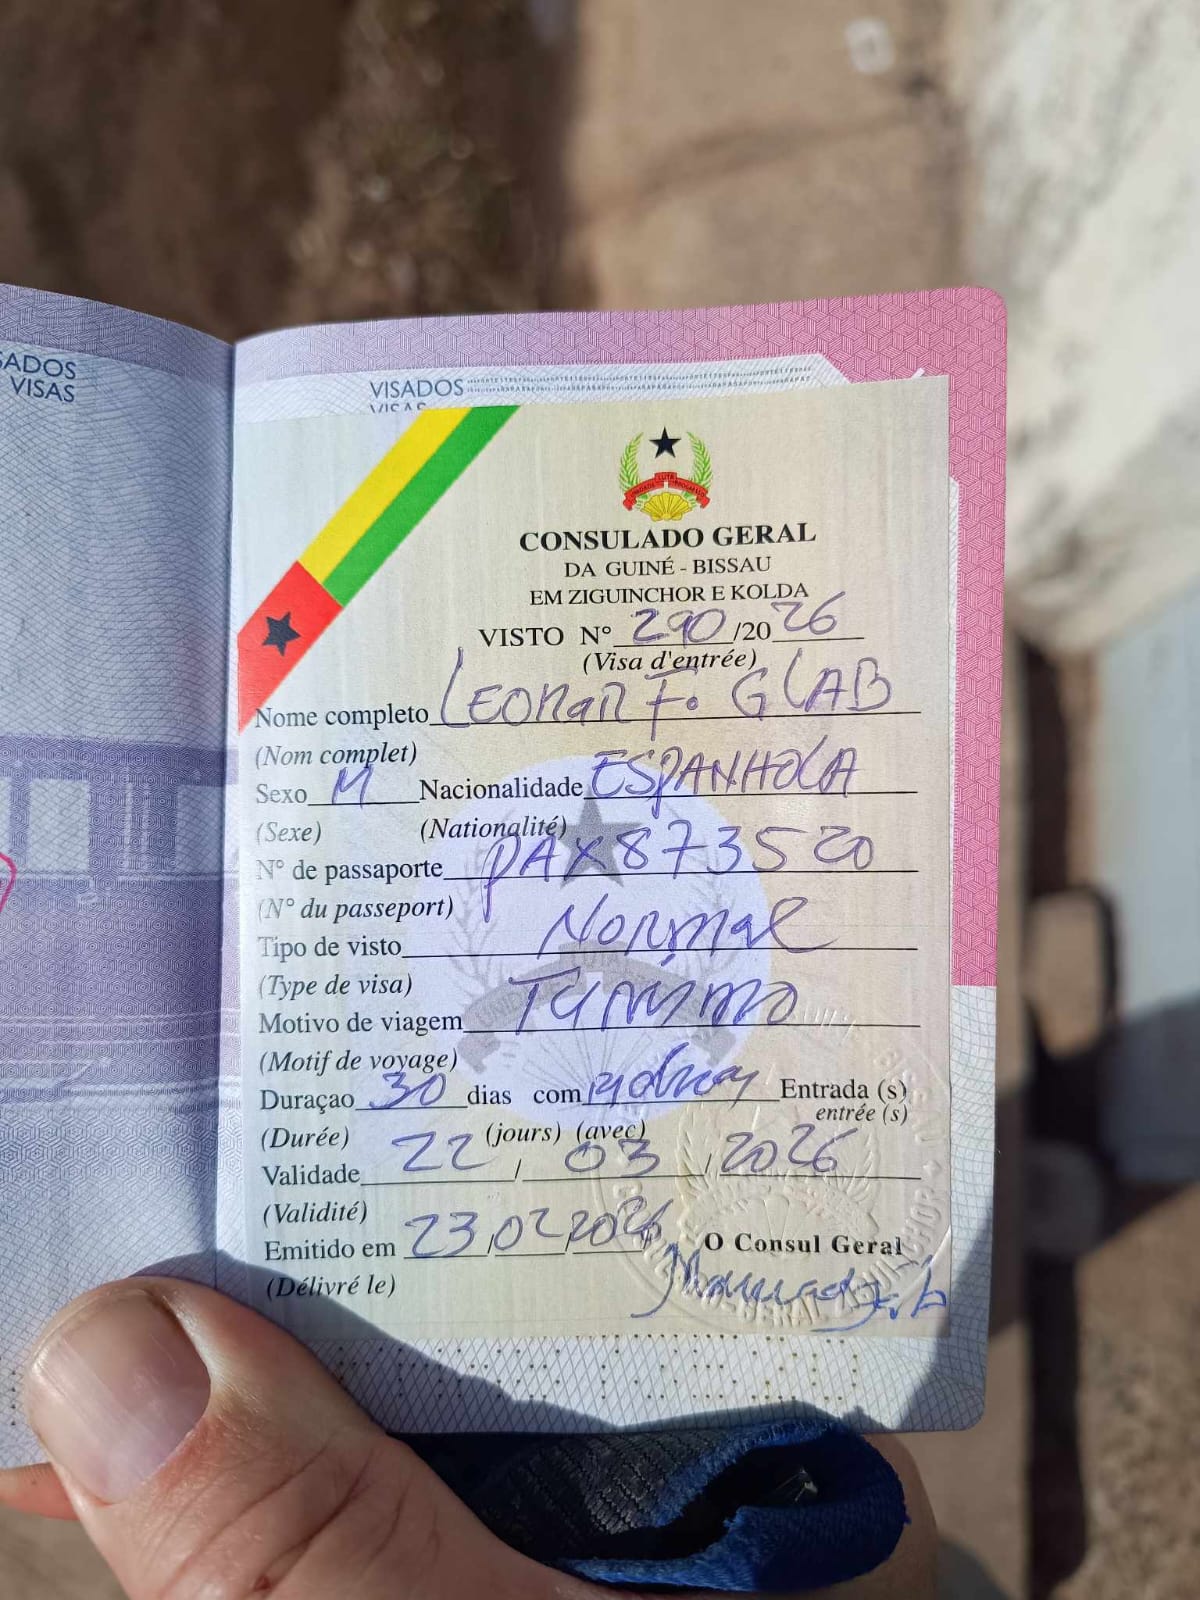 SADOS
VISAS
VISADOS
VISAS
UNIDADE LUTA PROGRESSO
CONSULADO GERAL
DA GUINÉ - BISSAU
EM ZIGUINCHOR E KOLDA
VISTO N° 290/2026
(Visa d'entrée)
Nome completo LEONAR Fo GLAB
(Nom complet)
Sexo M Nacionalidade ESPANHOLA
(Sexe) (Nationalité)
N° de passaporte PAX873520
(N° du passeport)
Tipo de visto Normal
(Type de visa)
Motivo de viagem Turismo
(Motif de voyage)
Duraçao 30 dias com Entrada (s)
entrée (s)
(Durée) (jours) (avec)
Validade 22/03/2026
(Validité)
Emitido em 23/02/2026 O Consul Geral
(Délivré le)